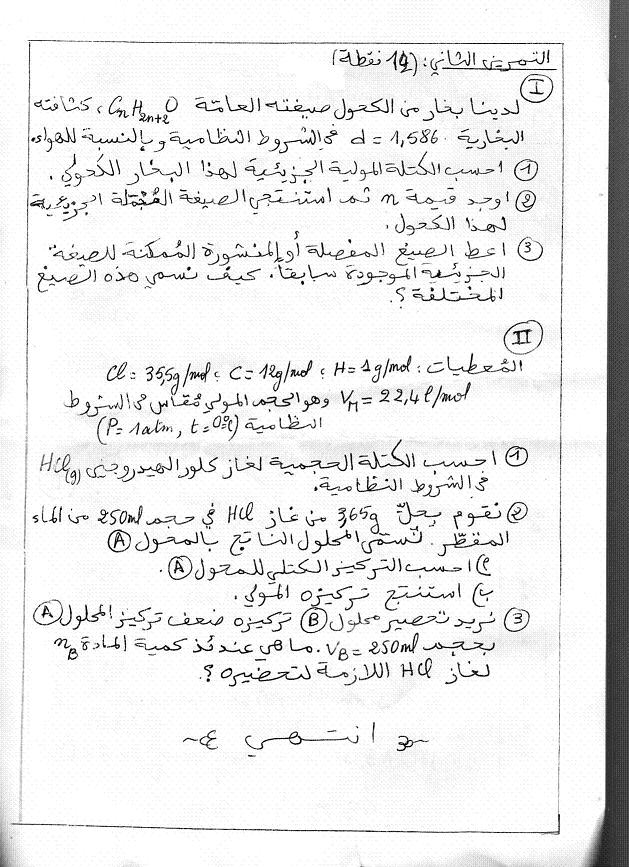 التمرين الثاني: (12 نقطة)
I
لدينا بخار من الكحول صيغته العامة CnH2n+2O، كثافته
البخارية d = 1,586 في الشروط النظامية وبالنسبة للهواء.
① احسب الكتلة المولية الجزيئية لهذا البخار الكحولي.
② اوجد قيمة n ثم استنتجي الصيغة المجملة الجزيئية
لهذا الكحول.
③ اعط الصيغ المفصلة أو المنشورة الممكنة للصيغة
الجزيئية الموجودة سابقاً. كيف نسمي هذه الصيغ
المختلفة؟
II
المُعطيات: Cl = 35,5g/mol ؛ C = 12g/mol ؛ H = 1g/mol
VM = 22,4 l/mol وهو الحجم المولي مُقاس في الشروط
النظامية (P = 1atm, t = 0°C)
① احسب الكتلة الحجمية لغاز كلور الهيدروجين HCl(g)
في الشروط النظامية.
② نقوم بحلّ 3,65g من غاز HCl في حجم 250ml من الماء
المقطّر. نُسمّي المحلول الناتج بالمحول Ⓐ
أ) احسب التركيز الكتلي للمحول Ⓐ.
ب) استنتج تركيزه المولي.
③ نريد تحضير محلول Ⓑ تركيزه ضعف تركيز المحلول Ⓐ
بحجم VB = 250ml. ما هي عندئذ كمية المادة nB
لغاز HCl اللازمة لتحضيره؟
انتهى